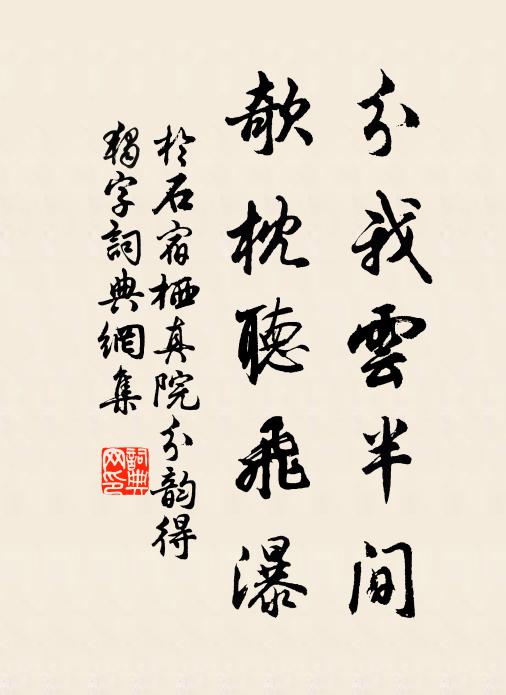 分我雲半間
欹枕聽飛瀑
於石宿栖真院分韵得
獨字詞典網集
詞典
网印